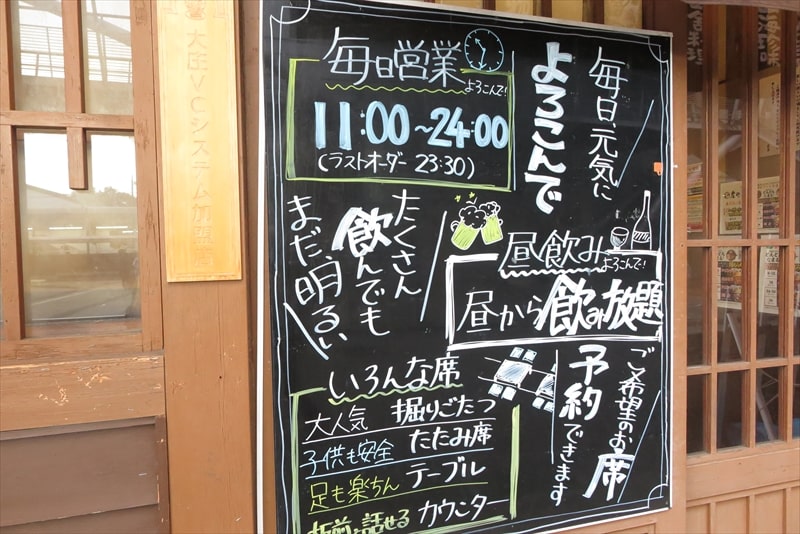 毎日営業
よろこんで!
11:00〜24:00
(ラストオーダー 23:30)
毎日、元気に
よろこんで
たくさん
飲んでも
まだ、明るい
昼飲み
よろこんで!
昼から飲み放題
いろんな席
大人気 掘りごたつ
子供も安全 たたみ席
足も楽ちん テーブル
板前と話せる カウンター
ご希望のお席
予約できます
大庄VCシステム加盟店